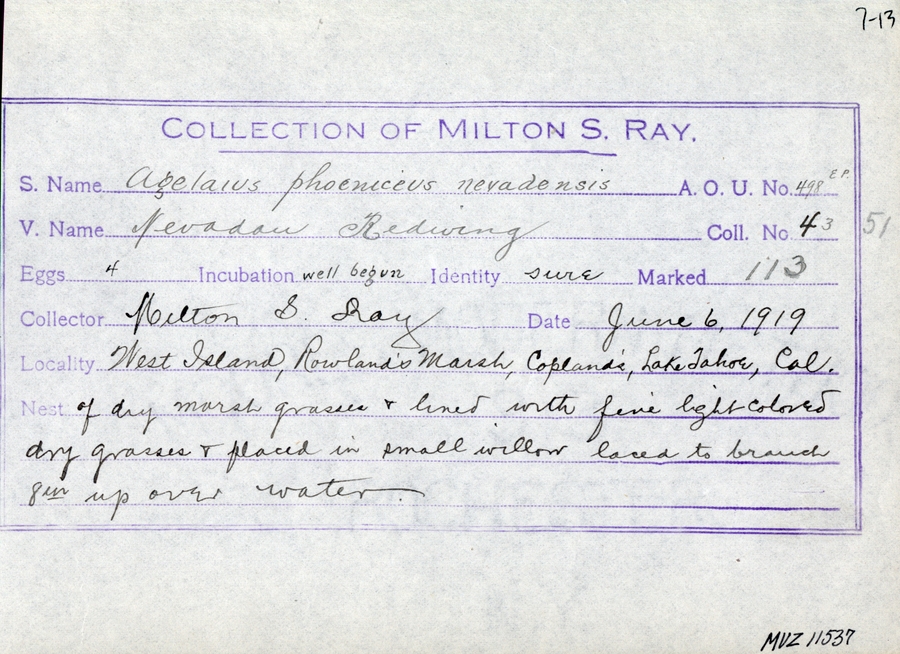 7-13
COLLECTION OF MILTON S. RAY.
S. Name Agelaius phoeniceus nevadensis A. O. U. No. 498 E.P.
V. Name Nevadan Redwing Coll. No 43 51
Eggs 4 Incubation well begun Identity sure Marked 113
Collector Milton S. Ray Date June 6, 1919
Locality West Island, Rowland's Marsh, Copland's, Lake Tahoe, Cal.
Nest of dry marsh grasses & lined with fine light colored
dry grasses & placed in small willow laced to branch
8 in up over water.
MVZ 11537